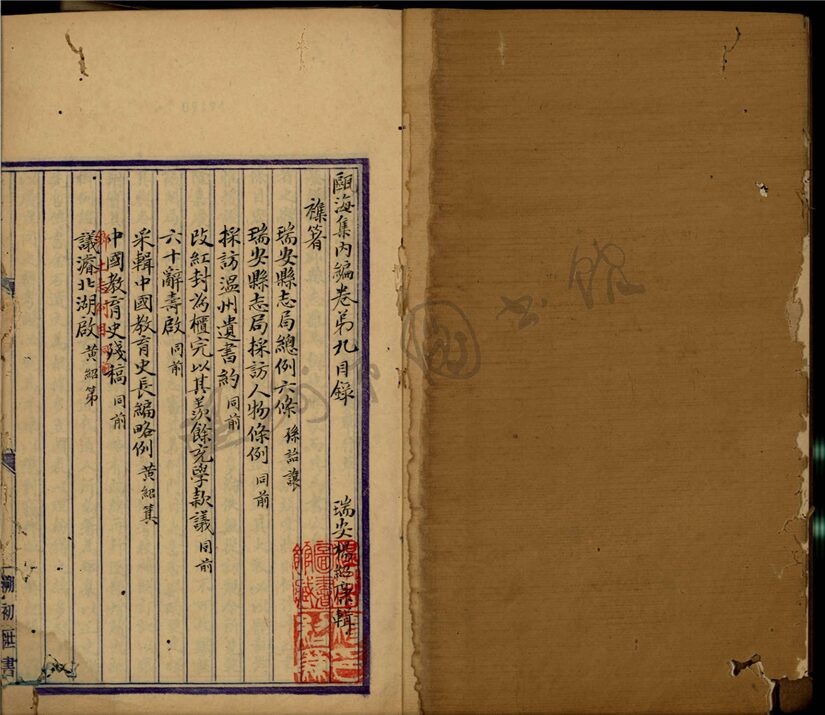 甌海集內編卷第九目錄
瑞安楊紹廉輯
襍箸
瑞安縣志局總例六條 孫詒讓
瑞安縣志局採訪人物條例 同前
採訪溫州遺書約 同前
改紅封為櫃完以其羨餘充學款議 同前
六十辭壽啟 同前
采輯中國教育史長編略例 黃紹箕
中國教育史殘稿 同前
議濬北湖啟 黃紹第
圖書館藏